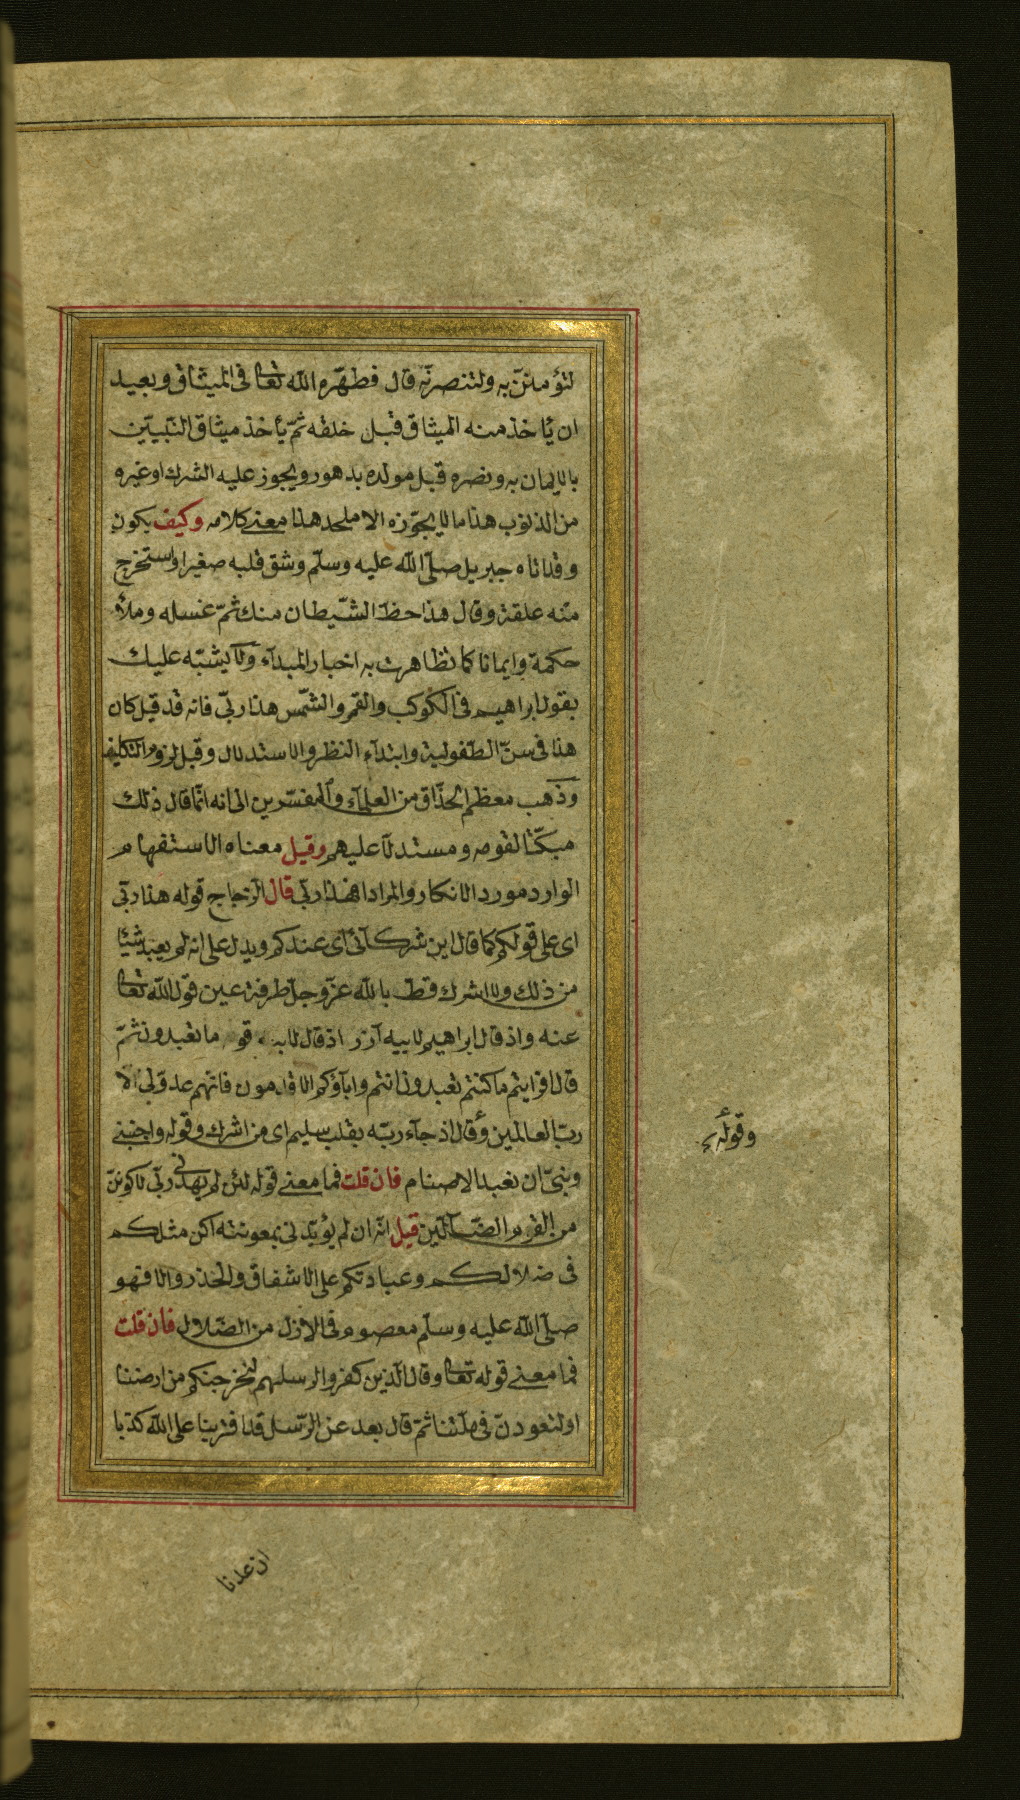 لتؤمننّ به ولتنصرنّه قال فطهّره الله تعالى فى الميثاق وبعيد
ان يأخذ منه الميثاق قبل خلقه ثمّ يأخذ ميثاق النّبيّين
بالايمان به ونصره قبل مولده بدهور ويجوز عليه الشرك او غيره
من الذنوب هذا ما لا يجوّزه الا ملحد هذا معنى كلامه وكيف يكون
وقد اتاه جبريل صلّى الله عليه وسلّم وشق قلبه صغيرا واستخرج
منه علقة وقال هذا حظ الشّيطان منك ثمّ غسله وملأه
حكمة وايمانا كما تظاهرت به اخبار المبدآء ولا يشبّه عليك
بقول ابراهيم فى الكوكب والقمر والشّمس هذا ربّى فانه قد قيل كان
هذا فى سنّ الطّفولية وابتدآء النظر والاستدلال وقبل لزوم التكليف
وذهب معظم الحذّاق من العلمآء والمفسّرين الى انه انّما قال ذلك
مبكّتا لقومه ومستدلّا عليهم وقيل معناه الاستفهام
الوارد مورد الانكار والمراد افهذا ربّى قال الزجاج قوله هذا ربّى
اى على قولكم كما قال اين شركآئى اى عندكم ويدل على انه لم يعبد شيئا
من ذلك ولا اشرك قطّ بالله عزّ وجلّ طرفة عين قول الله تعالى
عنه واذ قال ابراهيم لابيه آزر اذ قال لابيه وقومه ما تعبدون ثمّ
قال افرايتم ما كنتم تعبدون انتم وابآؤكم الاقدمون فانّهم عدوّ لى الا
ربّ العالمين وقال اذ جآء ربّه بقلب سليم اى من الشرك وقوله واجنبنى
وبنىّ ان نعبد الاصنام فان قلت فما معنى قوله لئن لم يهدنى ربّى لاكوننّ
من القوم الضّآلّين قيل انّه ان لم يؤيّدنى بمعونته اكن مثلكم
فى ضلالكم وعبادتكم على الاشفاق والحذر والا فهو
صلّى الله عليه وسلّم معصوم فى الازل من الضّلال فان قلت
فما معنى قوله تعالى وقال الّذين كفروا لرسلهم لنخرجنكم من ارضنا
او لتعودنّ فى ملّتنا ثمّ قال بعد عن الرّسل قد افترينا على الله كذبا
وقوله
ان عدنا